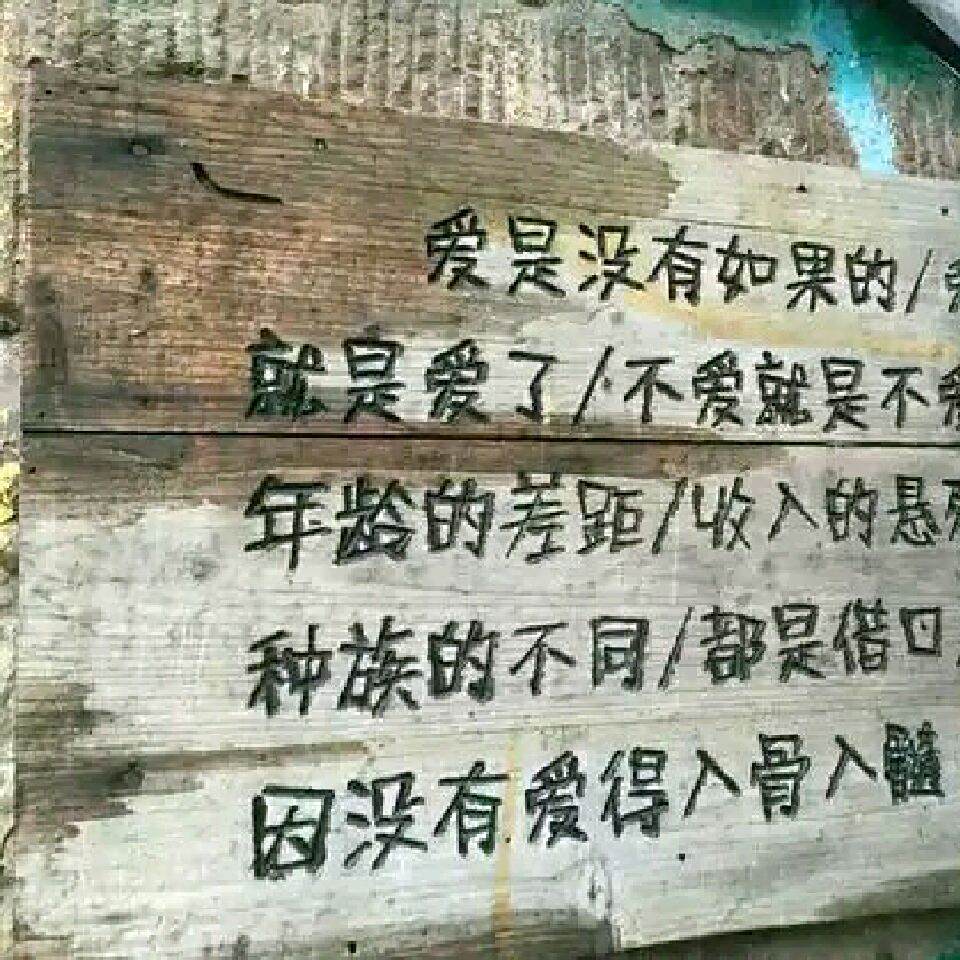 爱是没有如果的/
就是爱了/不爱就是不
年龄的差距/收入的悬
种族的不同/都是借口
因没有爱得入骨入髓